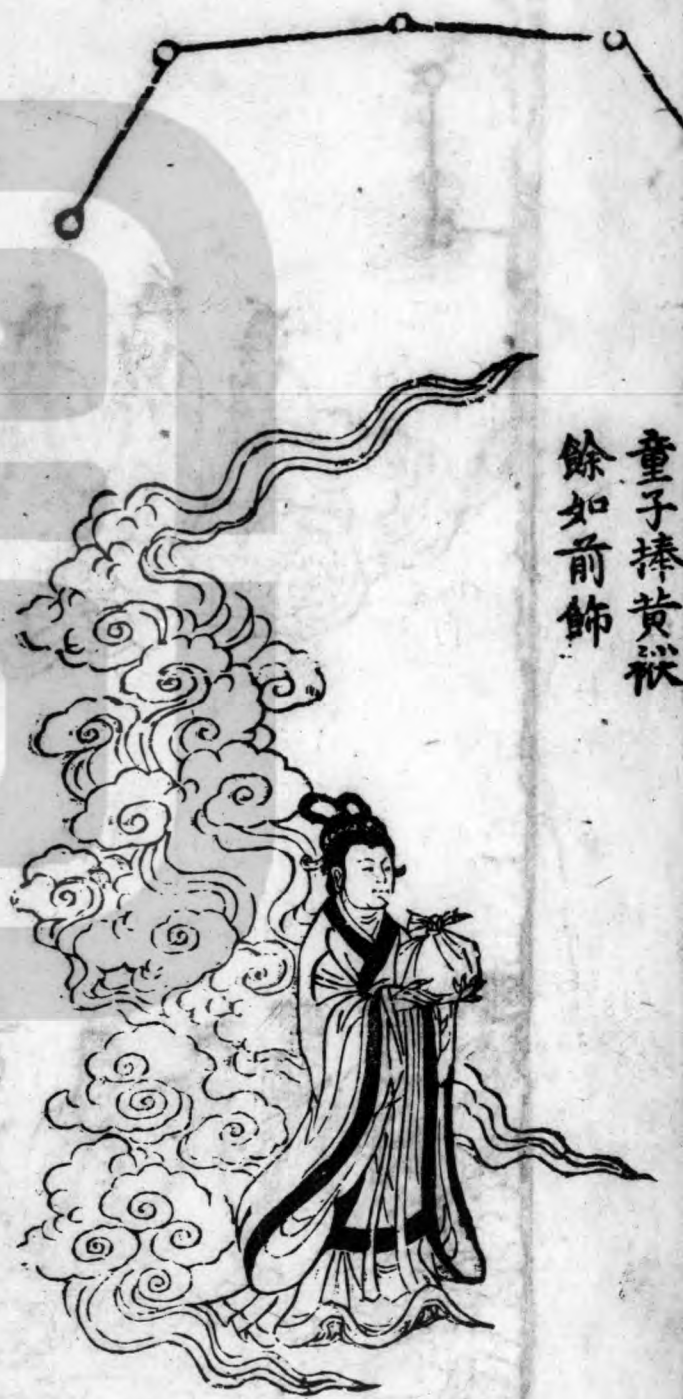 童子捧黄袱
餘如前飾